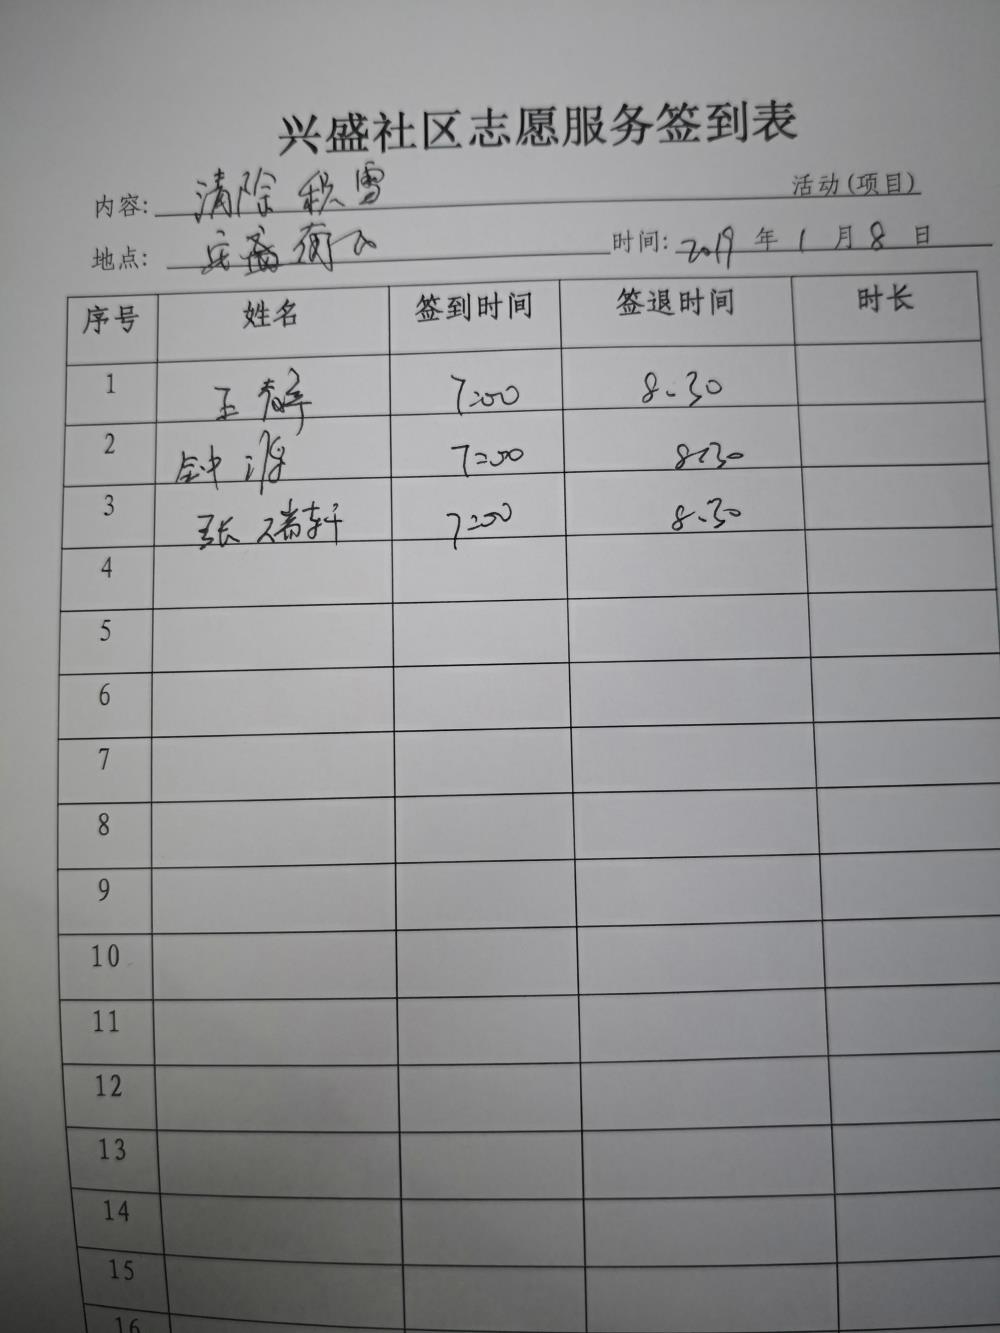 兴盛社区志愿服务签到表
内容: 清除积雪 活动(项目)
地点: 时间: 2019 年 1 月 8 日
序号 姓名 签到时间 签退时间 时长
1 王 7:00 8:30
2 钟 7:00 8:30
3 张瑞轩 7:00 8:30
4
5
6
7
8
9
10
11
12
13
14
15
16